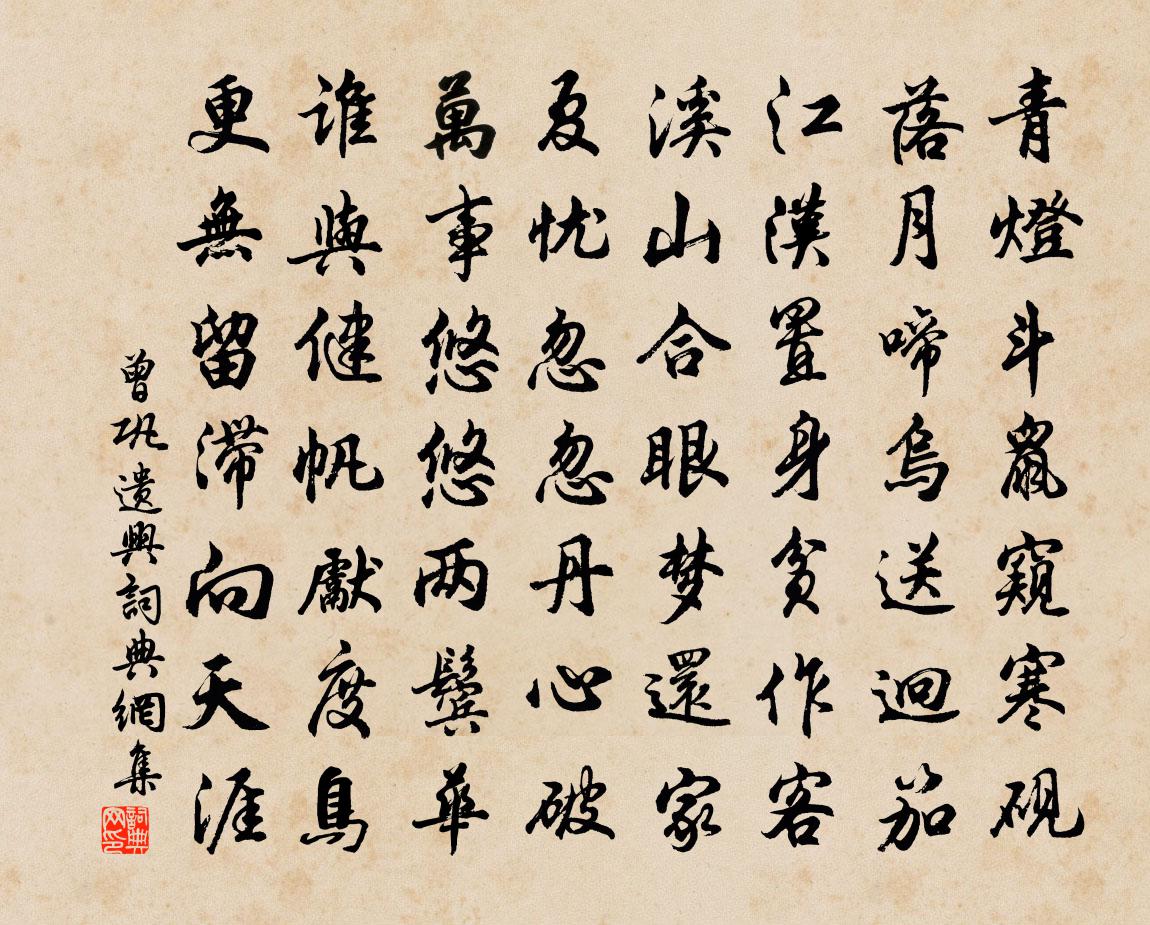 青燈斗鼠窺寒硯
落月啼烏送迥笳
江漢置身貧作客
溪山合眼梦還家
夏忧忽忽丹心破
萬事悠悠两鬓華
誰與健帆獻度鳥
更無留滯向天涯
曾巩遣興詞典網集
詞典网印